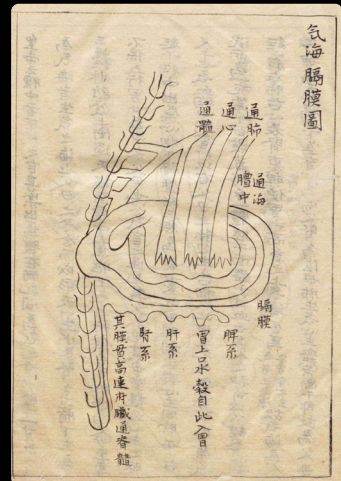 气海膈膜圖
通肺
通心
通髓
通海
膻中
膈膜
脾系
胃上口水穀自此入胃
肝系
腎系
其膜貫高連府臟通脊髓